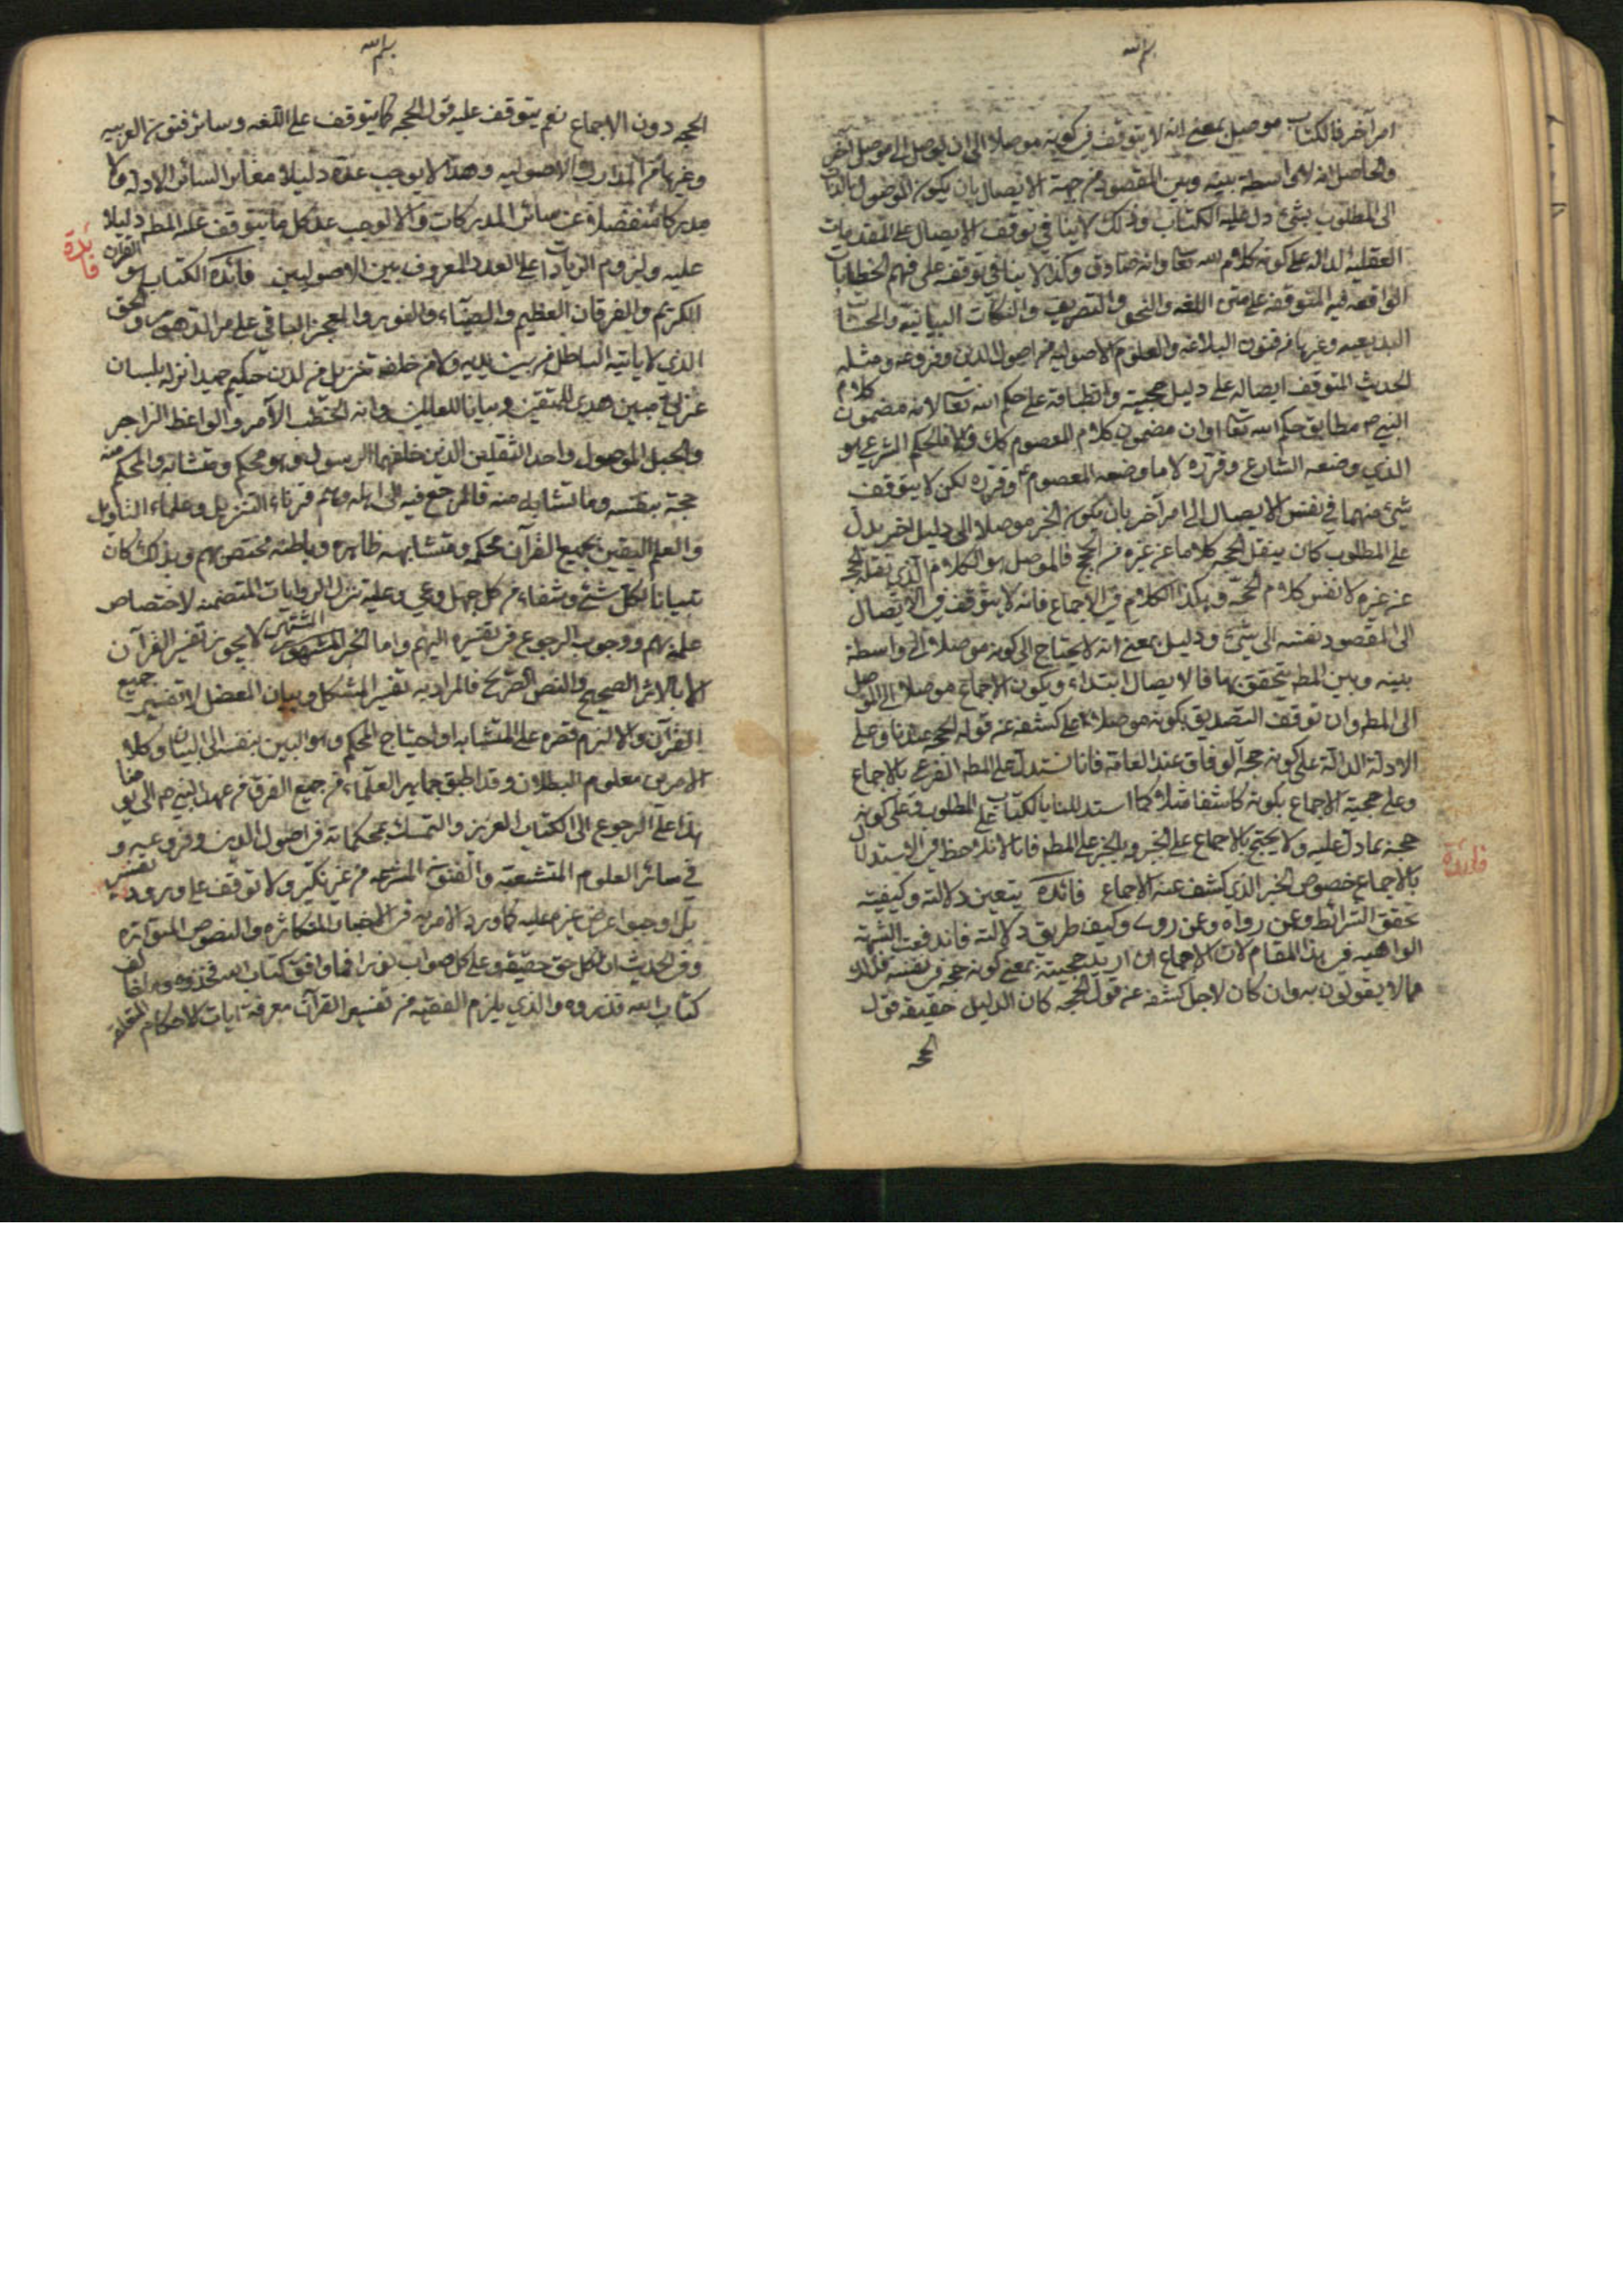 بسم الله
امر آخر فالكتاب موصل بمعنى انه لا يتوقف في كونه موصلا الى ان يوصل الى موصل آخر
والحاصل انه لا واسطة بينه وبين المقصود من جهة الايصال بان يكون الموصول بالذات
الى المطلوب بشئ دل عليه الكتاب وذلك لا ينافي توقف الايصال على المقدمات
العقلية الدالة على كونه كلام الله تعا وانه صادق وكذا لا ينافي توقفه على فهم الخطابات
الواقعة فيه المتوقفه على متن اللغه والنحو والتصريف والنكات البيانيه والمحسنات
البديعيه وغيرها من فنون البلاغه والعلوم الاصوليه من اصول الدين وفروعه ومثله
الحديث المتوقف ايصاله على دليل حجيته وانطباقه على حكم الله تعا لانه مضمون كلام
النبي ص مطابق حكم الله تعا او ان مضمون كلام المعصوم كك والا فالحكم الشرعي هو
الذي وضعه الشارع وقرره لا ما وضعه المعصوم او قرره لكن لا يتوقف
شئ منهما في نفس الايصال الى امر آخر بان يكون الخبر موصلا الى دليل اخر يدل
على المطلوب كان ينقل الحجه كلاما عن غيره من الحجج فالموصل هو الكلام الذي نقله الحجه
عن غيره لا نفس كلام الحجه وهكذا الكلام في الاجماع فانه لا يتوقف في الايصال
الى المقصود نفسه الى شئ ودليل بمعنى انه لا يحتاج الى كونه موصلا الى واسطة
بينه وبين المط يتحقق بها فالايصال ابتداء ويكون الاجماع موصلا الى الموصل
الى المط وان توقف التصديق بكونه موصلا على كشفه عن قول الحجه عندنا وعلى
الادلة الدالة على كونه حجة الوفاق عند العامة فانا نستدل على المط الفرعي بالاجماع
وعلى حجية الاجماع بكونه كاشفا مثلا كما استدللنا بالكتاب على المطلوب وعلى كونه
حجة بما دل عليه ولا يحتج بالاجماع على الخبر وبالخبر على المط فانا لا نلاحظ في الاستدلال
بالاجماع خصوص الخبر الذي كشف عنه الاجماع فائدة يتعين دلالته وكيفيته
تحقق الشرائط وعن رواه وعن روى وكيف طريق دلالته فاندفعت الشبهة
الواهيه في هذا المقام لان الاجماع ان اريد حجيته بمعنى كونه حجه في نفسه
مما لا يقولون به وان كان لاجل كشفه عن قول الحجه كان الدليل حقيقة قول
الحجه
فائدة
بسم الله
الحجه دون الاجماع نعم يتوقف عليه قول الحجه كما يتوقف على اللغه وسائر فنون العربيه
وغيرها من المدارك الاصوليه وهذا لا يوجب عده دليلا مغايرا لسائر الادله ولا
مدركا منفصلا عن سائر المدركات والا لوجب عد كل ما يتوقف عليه المط دليلا
عليه ولزوم الزيادات على العدد المعروف بين الاصوليين فائدة الكتاب هو القرآن
الكريم والفرقان العظيم والضياء والنور والمعجز الباقي على مر الدهور والحق
الذي لا ياتيه الباطل من بين يديه ولا من خلفه تنزيل من لدن حكيم حميد انزله بلسان
عربي مبين هدى للمتقين وبيانا للعالمين وانه الآمر والواعظ الزاجر
والحبل الموصول واحد الثقلين الذين خلفهما الرسول وهو محكم ومتشابه والمحكم منه
حجة بنفسه وما تشابه منه فالمرجع فيه الى اهله وهم قرناء التنزيل وعلماء التاويل
والعلم اليقين بجميع القرآن محكمه ومتشابهه ظاهره وباطنه مختص بهم وبذلك كان
تبيانا لكل شئ وشفاء من كل جهل وعي وعليه تنزل الروايات المتضمنه لاختصاص
علمه بهم ووجوب الرجوع في تفسيره اليهم واما الخبر المشتهر لا يجوز تفسير القرآن
الا بالاثر الصحيح والنص الصريح فالمراد به تفسير المشكل وبيان المعضل لا تفسير جميع
القرآن والا لزم قصره على المتشابه او احتياج المحكم وهو البين بنفسه الى البيان وكلا
الامرين معلوم البطلان وقد اطبق جماهير العلماء من جميع الفرق من عهد النبي ص الى يومنا
هذا على الرجوع الى الكتاب العزيز والتمسك بمحكماته في اصول الدين وفروعه و
في سائر العلوم المتشعبه والفنون من غير نكير ولا توقف على ورود تفسير
بل اوجبوا عرض غيره عليه كما ورد الامر به في الاخبار المتكاثره والنصوص المتواتره
وفي الحديث ان لكل حق حقيقه وعلى كل صواب نورا فما وافق كتاب الله فخذوه وما خالف
كتاب الله فذروه والذي يلزم الفقيه من تفسير القرآن معرفة آيات الاحكام المتعلقه
فائدة